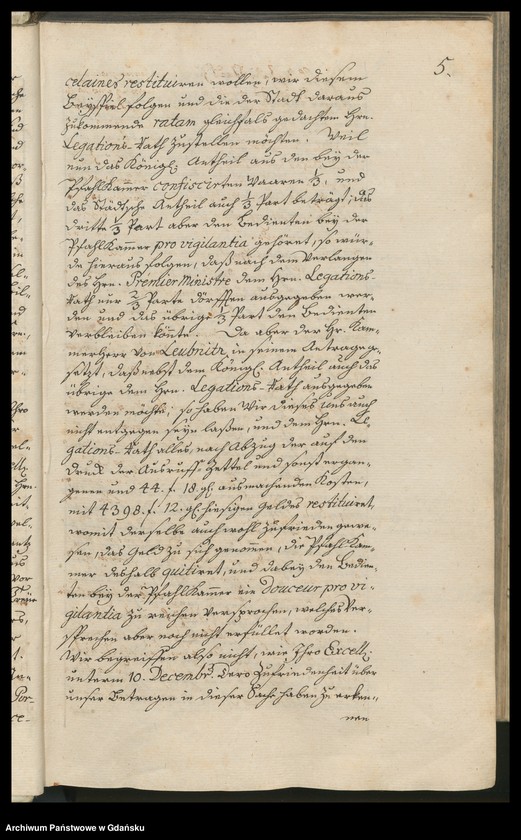 5.
celaines restituiren wollen, wir diesem
Beyspiel folgen und die der Stadt daraus
zukommende ratam gleichfals gedachten Hrn.
Legations-Rath zustellen möchten. Weil
nun das Königl. Antheil aus den bey der
Pfahlkamer confiscirten Waaren 1/3, und
das Städtsche Antheil auch 1/3 Part beträgt, das
dritte 1/3 Part aber den Bedienten bey der
Pfahlkamer pro vigilantia gehöret, so wür-
de hieraus folgen, daß nach dem Verlangen
des Hrn. Premier Ministre dem Hrn. Legations-
Rath nur 2/3 Parte dörfften ausgegeben wer-
den und das übrige 1/3 Part den Bedienten
verbleiben könte. Da aber der Hr. Kam-
merherr von Leubnitz, in seinem Antrage ge-
setzt, daß nebst dem Königl. Antheil auch das
übrige dem Hrn. Legations-Rath ausgegeben
werden möchte; so haben Wir dieses uns auch
nicht entgegen seyn laßen, und dem Hrn. Le-
gations-Rath alles, nach Abzug der auf den
Druck der Ausruff Zettel und sonst ergan-
genen und 44. f. 18. gl. ausmachenden Kosten,
mit 4398. f. 12. gl. hiesigen Geldes restituiret,
womit derselbe auch wohl zufrieden gewe-
sen, das Geld zu sich genommen, die Pfahlkam-
mer deshalb quitiret, und dabey den Bedien-
ten bey der Pfahlkamer ein Douceur pro vi-
gilantia zu reichen versprochen, welches Ver-
sprechen aber noch nicht erfüllet worden.
Wir begreiffen also nicht, wie Ihro Excell.
unterm 10. Decembr. Dero Zufriedenheit über
unser Betragen in dieser Sache haben zu erken-
nen
Archiwum Państwowe w Gdańsku